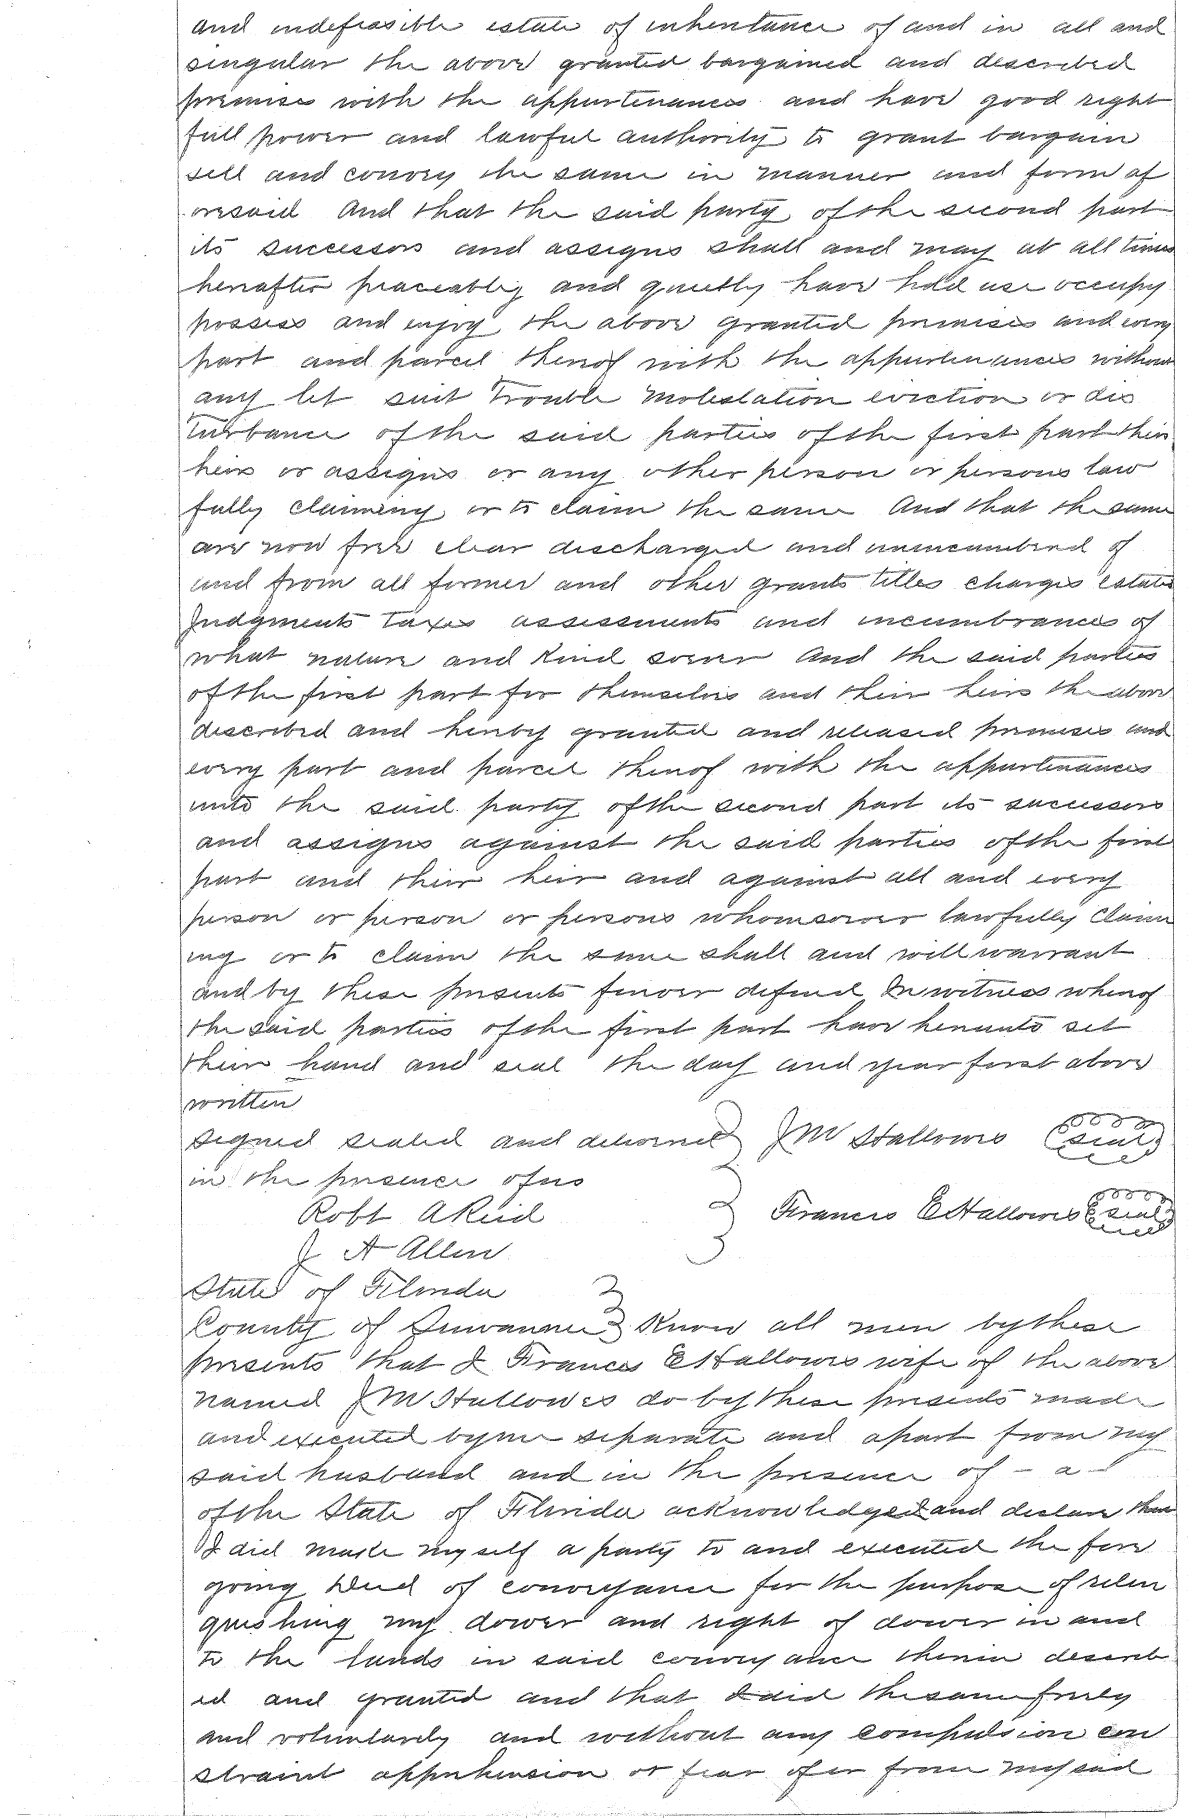 and indefeasible estate of inheritance of and in all and
singular the above granted bargained and described
premises with the appurtenances and have good right
full power and lawful authority to grant bargain
sell and convey the same in manner and form af
oresaid And that the said party of the second part
its successors and assigns shall and may at all times
hereafter peaceably and quietly have hold use occupy
possess and enjoy the above granted premises and every
part and parcel thereof with the appurtenances without
any let suit trouble molestation eviction or dis
turbance of the said parties of the first part their
heirs or assigns or any other person or persons law
fully claiming or to claim the same And that the same
are now free clear discharged and unincumbered of
and from all former and other grants titles charges estates
Judgments taxes assessments and incumbrances of
what nature and kind soever And the said parties
of the first part for themselves and their heirs the above
described and hereby granted and released premises and
every part and parcel thereof with the appurtenances
unto the said party of the second part its successors
and assigns against the said parties of the first
part and their heir and against all and every
person or person or persons whomsoever lawfully claim
ing or to claim the same shall and will warrant
and by these presents forever defend In witness whereof
the said parties of the first part have hereunto set
their hand and seal the day and year first above
written
signed sealed and delivered } J M Hallowes (seal)
in the presence of us
Robt A Reid } Frances E Hallowes (seal)
J A Allen
State of Florida
County of Suwannee } Know all men by these
presents that I Frances E Hallowes wife of the above
named J M Hallowes do by these presents made
and executed by me separate and apart from my
said husband and in the presence of - a -
of the State of Florida acknowledged and declare that
I did make myself a party to and executed the fore
going Deed of conveyance for the purpose of relin
quishing my dower and right of dower in and
to the lands in said conveyance therein describ
ed and granted and that I did the same freely
and voluntarily and without any compulsion con
straint apprehension or fear of or from my said